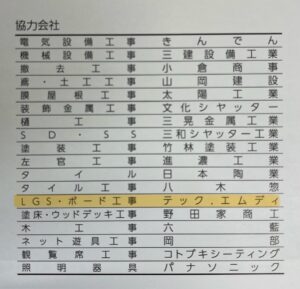 協力会社
電気設備工事 きんでん
機械設備工事 三建設備工業
撤去工事 小倉商事
鳶・土工工事 山岡建設
膜屋根工事 太陽工業
装飾金属工事 文化シヤッター
樋工事 三晃金属工業
SD・SS 三和シヤッター工業
塗装工事 竹林塗装工業
左官工事 進濃工業
タイル 日本陶業
タイル工事 八木惣
LGS・ボード工事 テック.エムディ
塗床・ウッドデッキ工事 野田家商工
木工事 六藍
ネット遊具工事 岡部
観覧席工事 コトブキシーティング
照明器具 パナソニック